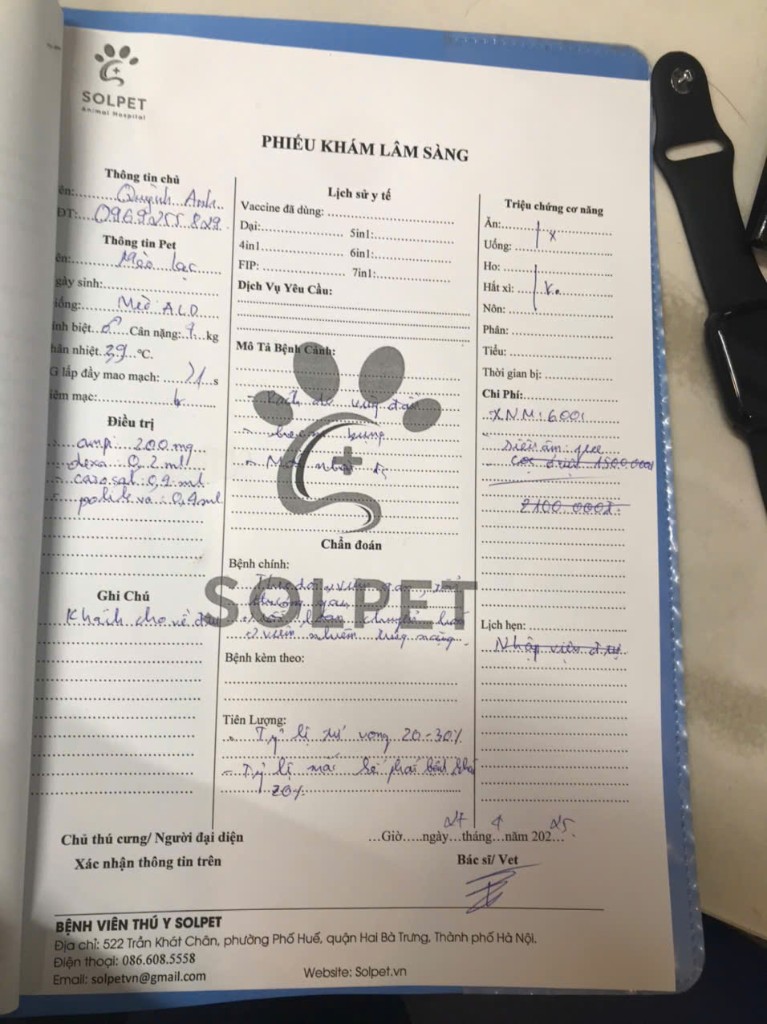 SOLPET
Animal Hospital
PHIẾU KHÁM LÂM SÀNG
Thông tin chủ
ên: Quỳnh Anh
ĐT: 0969255829
Thông tin Pet
ên: Mèo lạc
gày sinh:
iống: Mèo ALD
ính biệt Cân nặng: kg
hân nhiệt 39 °C.
G lấp đầy mao mạch: >1 s
iêm mạc:
Điều trị
amp 200 mg
dexa 0,2 ml
0,9 ml
0,9 ml
Ghi Chú
Khách cho về
Lịch sử y tế
Vaccine đã dùng:
Dại: 5in1:
4in1 6in1:
FIP: 7in1:
Dịch Vụ Yêu Cầu:
Mô Tả Bệnh Cảnh:
bụng
SOLPET
Chẩn đoán
Bệnh chính:
Theo dõi viêm gan,
viêm nhiễm
Bệnh kèm theo:
Tiên Lượng:
- Tỷ lệ tử vong 20-30%
- Tỷ lệ mắt sẽ phải
20%
Triệu chứng cơ năng
Ăn:
Uống: x
Ho:
Hắt xì: Ko
Nôn:
Phân:
Tiểu:
Thời gian bị:
Chi Phí:
XNM: 600
siêu âm: free
1500000
2100.000đ
Lịch hẹn:
Nhập viện
Chủ thú cưng/ Người đại diện
Xác nhận thông tin trên
...Giờ.....ngày 27 tháng 4 năm 2025
Bác sĩ/ Vet
BỆNH VIÊN THÚ Y SOLPET
Địa chỉ: 522 Trần Khát Chân, phường Phố Huế, quận Hai Bà Trưng, Thành phố Hà Nội.
Điện thoại: 086.608.5558
Email: solpetvn@gmail.com Website: Solpet.vn